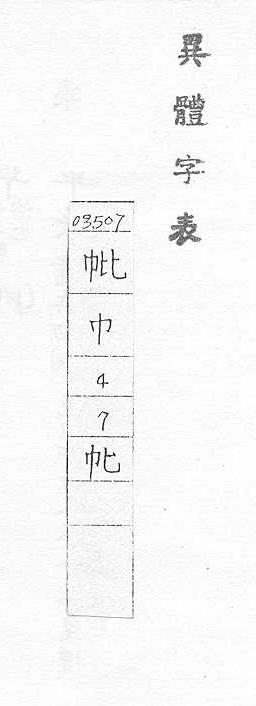 異體字表
03507
㠲
巾
4
7